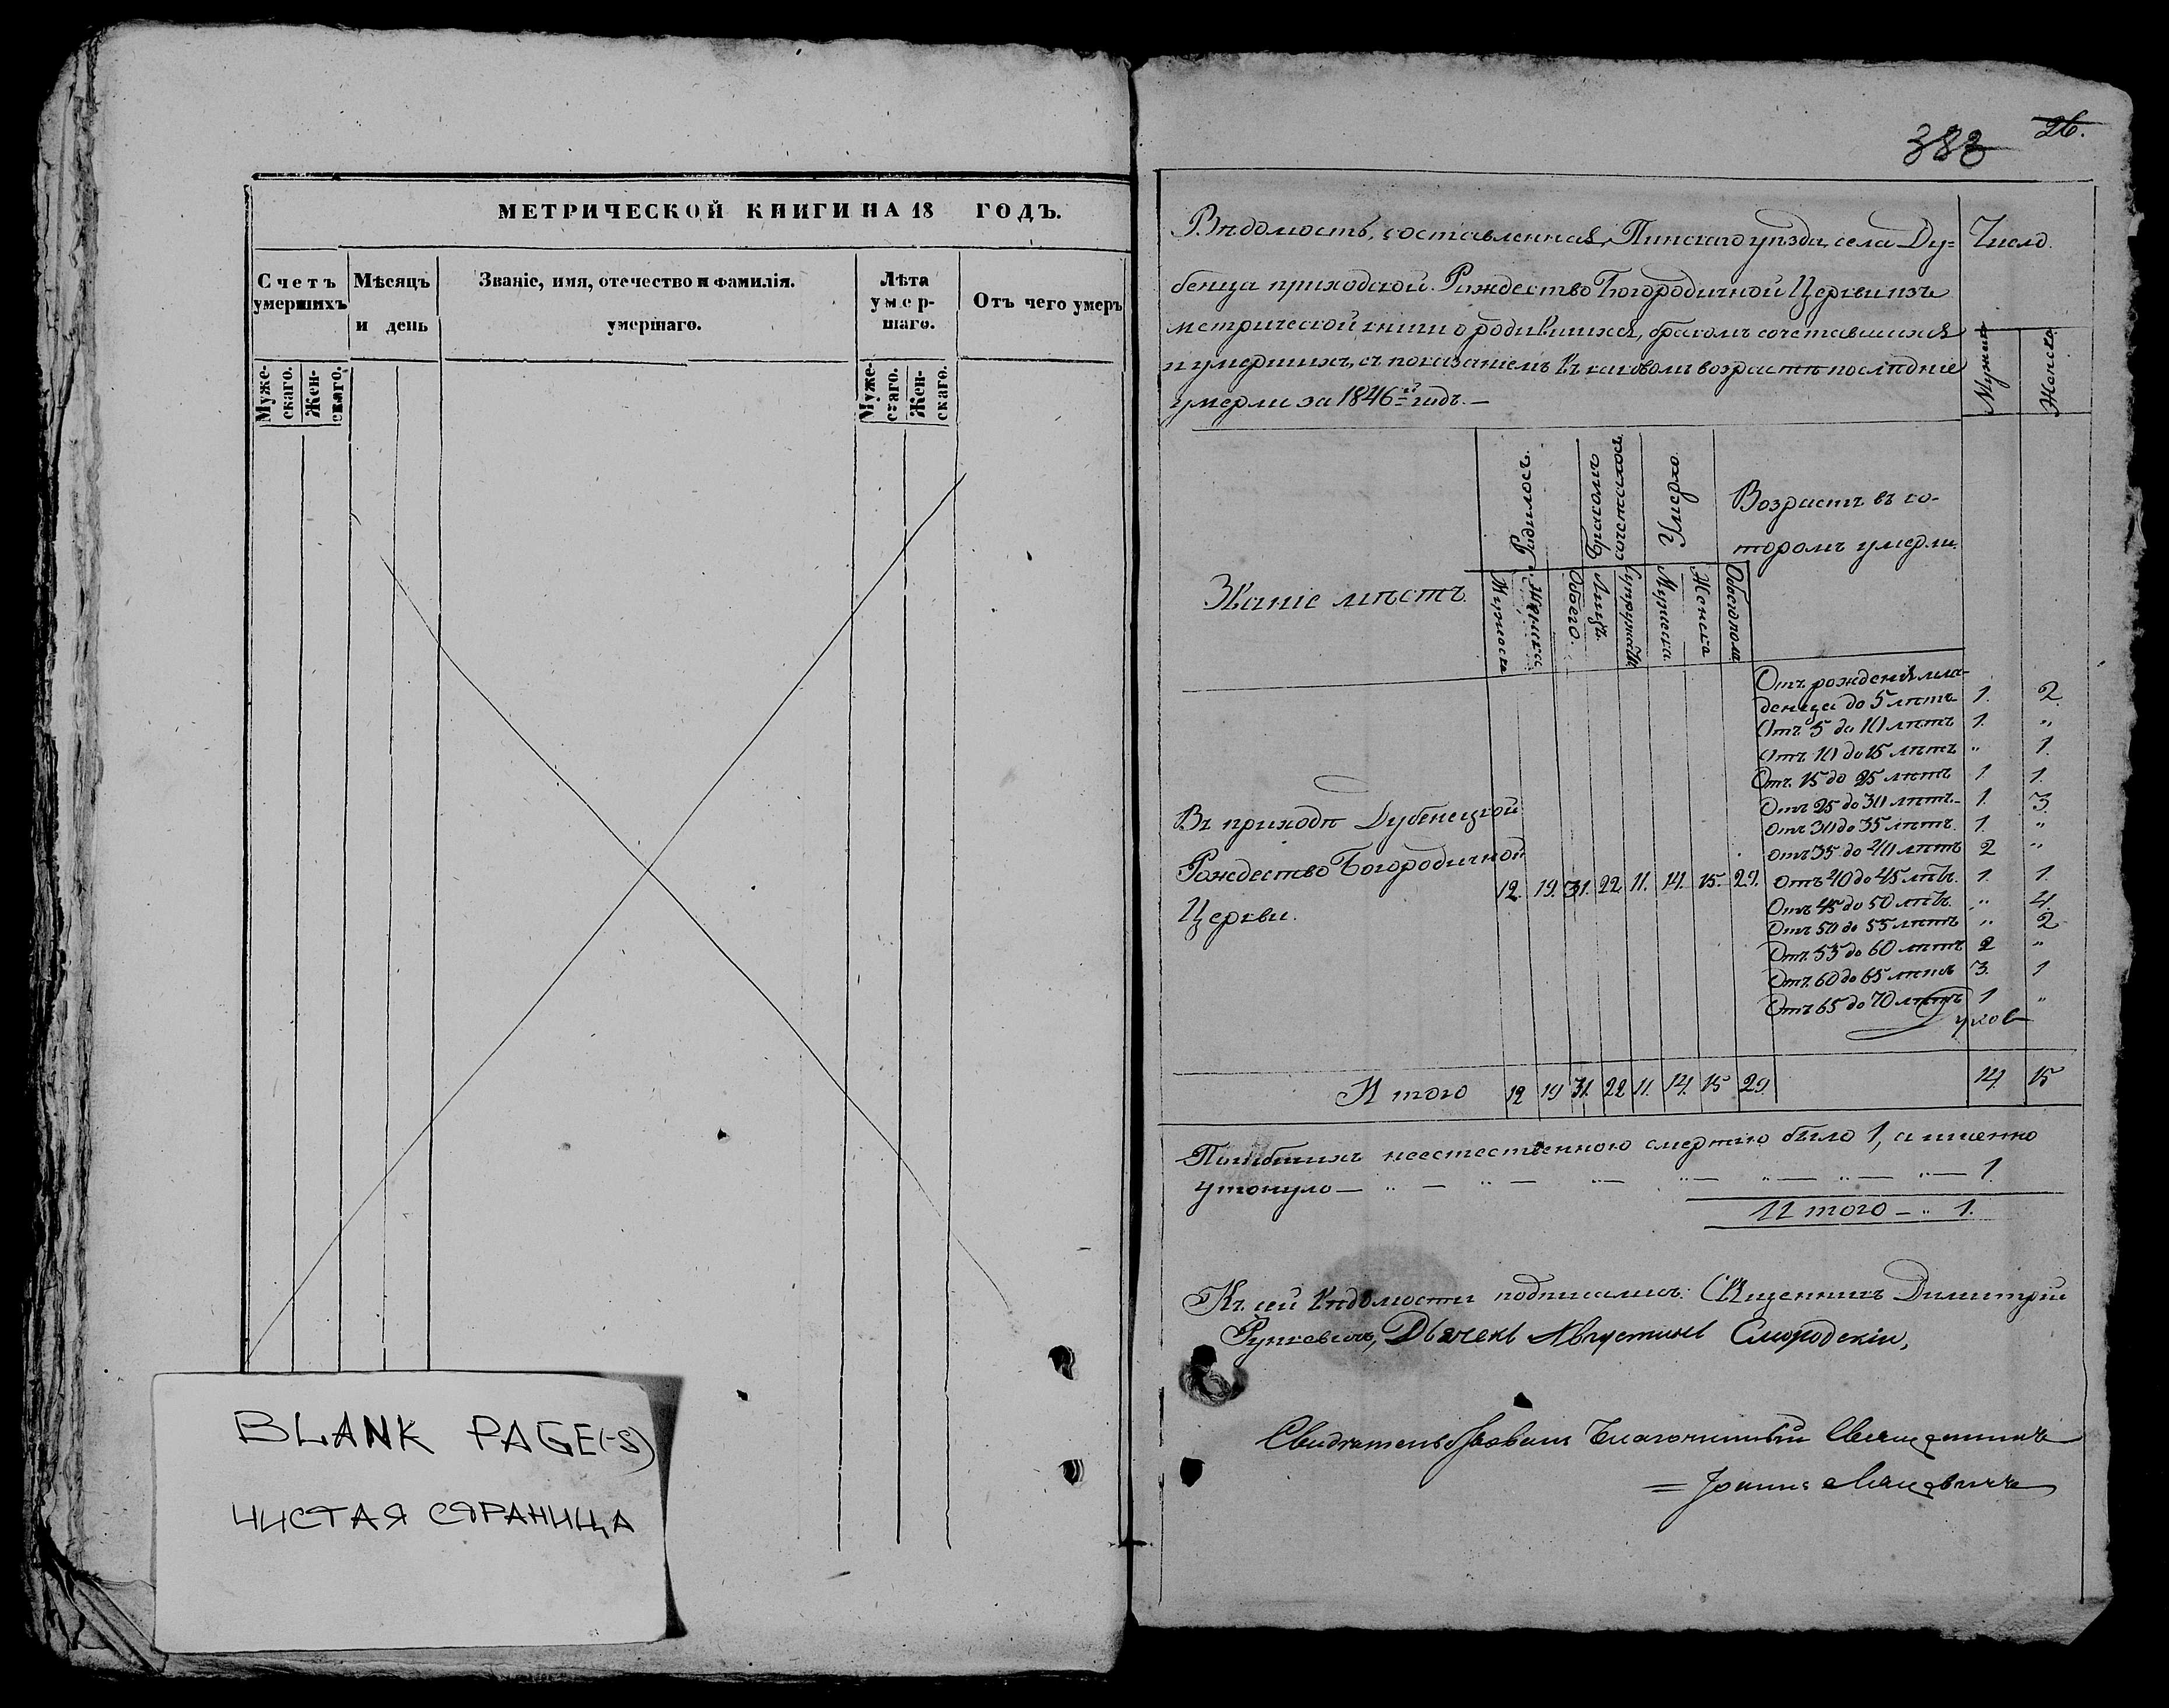 МЕТРИЧЕСКОЙ КНИГИ НА 18 ГОДЪ.
Счетъ умершихъ
Мѣсяцъ и день
Званіе, имя, отечество и фамилія. умершаго.
Лѣта умер-шаго.
Отъ чего умеръ
Муже-скаго.
Жен-скаго.
Муже-скаго.
Жен-скаго.
BLANK PAGE(-S)
ЧИСТАЯ СТРАНИЦА
383 26.
Вѣдомость, составленная, Пинскаго уѣзда, села Ду=
бенца приходской Рождество Богородичной Церкви изъ
метрической книги о родившихся, бракомъ сочетавшихся
и умершихъ, съ показаніемъ въ каковомъ возрастѣ послѣдніе
умерли за 1846й годъ. —
Число.
Мужска
Женска
Званіе мѣстъ.
Родилось.
Бракомъ сочеталось
Умерло
Возрастъ въ ко-
торомъ умерли.
Мужеска
Женска
Обоего.
Лицъ.
Супружествъ
Мужеска
Женска
Обоего пола
Отъ рожденія мла-
денца до 5 лѣтъ 1. 2.
Отъ 5 до 10 лѣтъ 1. "
Отъ 10 до 15 лѣтъ " 1.
Отъ 15 до 25 лѣтъ 1. 1.
Отъ 25 до 30 лѣтъ 1. 3.
Отъ 30 до 35 лѣтъ 1. "
Отъ 35 до 40 лѣтъ 2 "
Отъ 40 до 45 лѣтъ. 1. 1.
Отъ 45 до 50 лѣтъ. " 4.
Отъ 50 до 55 лѣтъ " 2
Отъ 55 до 60 лѣтъ 2 "
Отъ 60 до 65 лѣтъ 3. 1
Отъ 65 до 70 лѣтъ 1 "
Въ приходѣ Дубенецкой
Рождество Богородичной
Церкви.
12. 19. 31. 22. 11. 14. 15. 29.
Итого 12 19 31. 22 11. 14. 15 29. 14. 15
Погибшихъ неестественною смертію было 1, а именно
утонуло — " — " — " — " — " — " — " — 1.
Итого — " 1.
Къ сей вѣдомости подписались: Священникъ Димитрій
Рункевичъ, Дьячекъ Августинъ Смородскій,
Свидѣтельствовалъ Благочинный Священникъ
= Іоаннъ